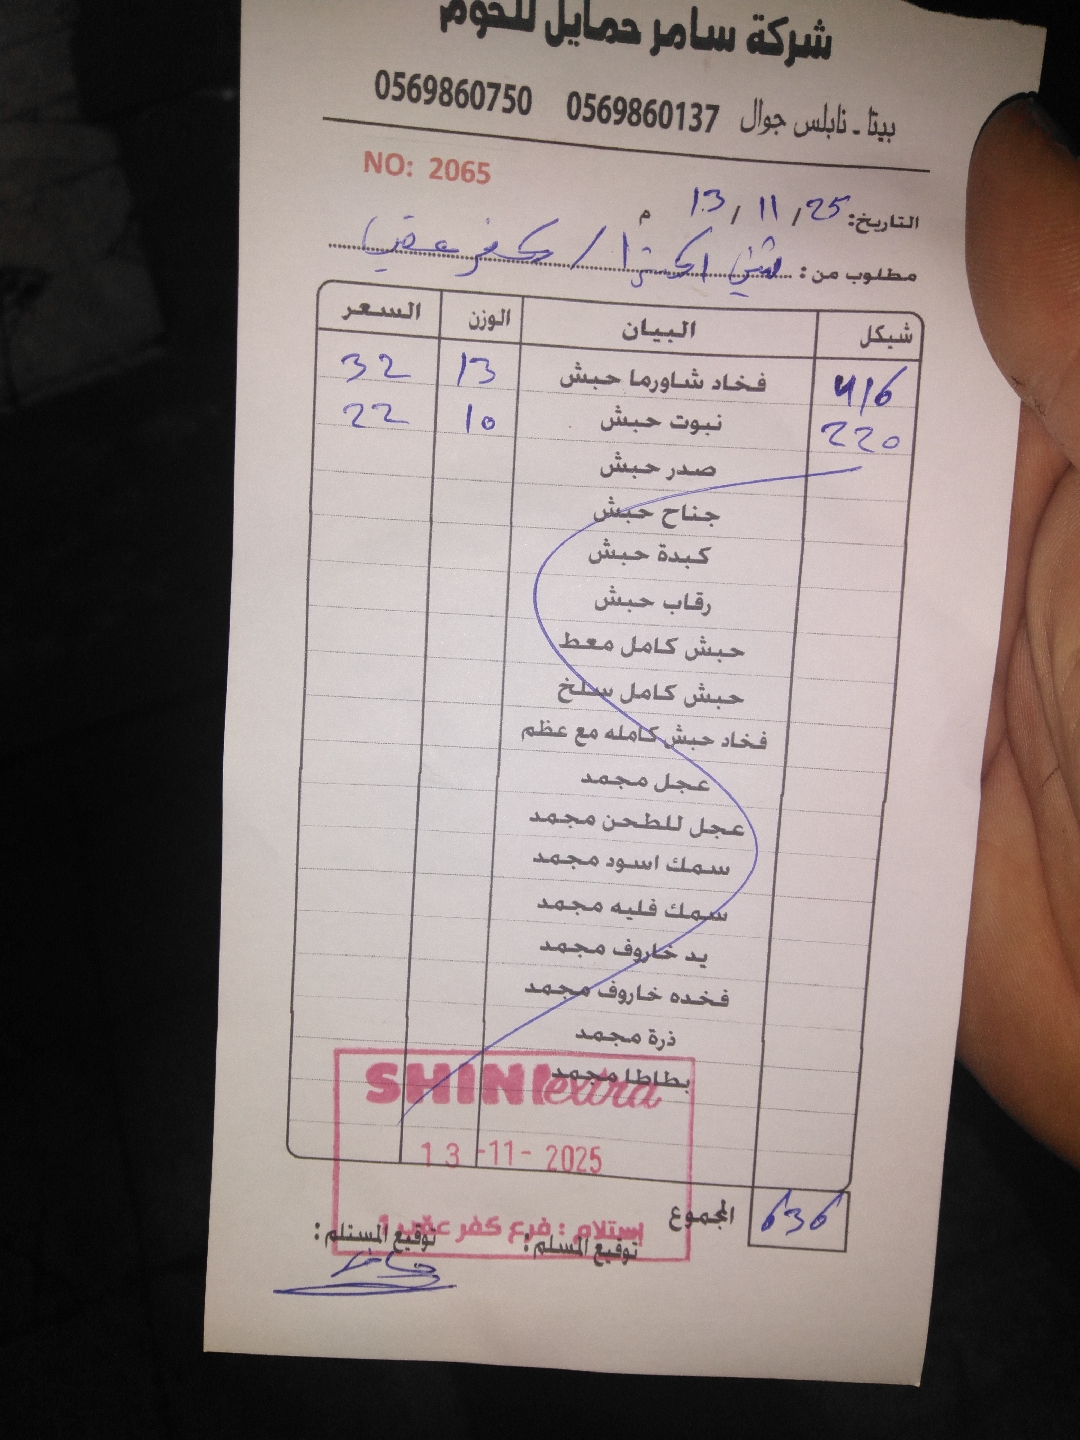 شركة سامر حمايل للحوم
بيتا - نابلس جوال 0569860137 0569860750
NO: 2065
التاريخ: 13 / 11 / 25 م
مطلوب من : شني اكسترا / كفر عقب
شيكل البيان الوزن السعر
416 فخاد شاورما حبش 13 32
220 نبوت حبش 10 22
صدر حبش
جناح حبش
كبدة حبش
رقاب حبش
حبش كامل معط
حبش كامل سلخ
فخاد حبش كامله مع عظم
عجل مجمد
عجل للطحن مجمد
سمك اسود مجمد
سمك فليه مجمد
يد خاروف مجمد
فخده خاروف مجمد
ذرة مجمد
بطاطا مجمد
SHINI extra
13 -11- 2025
إستلام : فرع كفر عقب
المجموع 636
توقيع المسلم : توقيع المستلم :